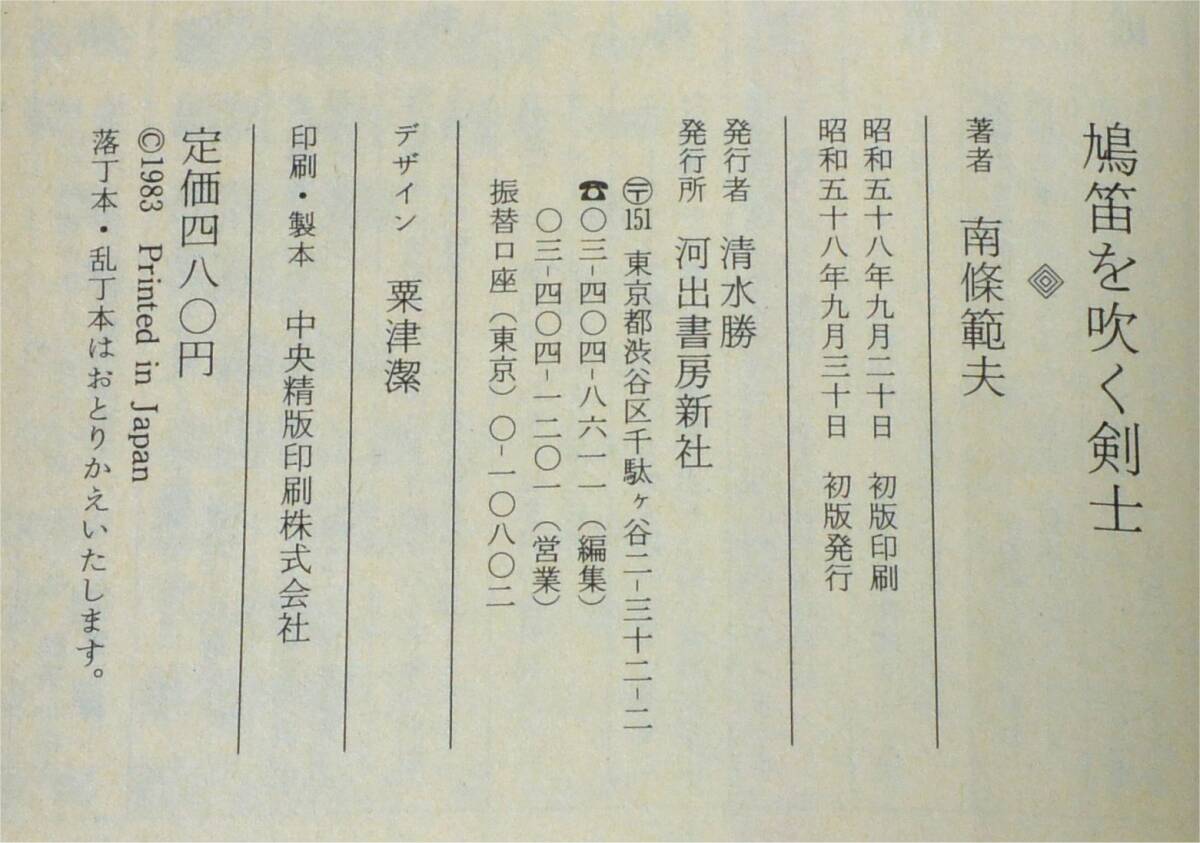 鳩笛を吹く剣士
著者 南條範夫
昭和五十八年九月二十日 初版印刷
昭和五十八年九月三十日 初版発行
発行者 清水勝
発行所 河出書房新社
〶151 東京都渋谷区千駄ヶ谷二-三十二-二
☎〇三-四〇四-八六一一(編集)
〇三-四〇四-一二〇一(営業)
振替口座(東京)〇-一〇八〇二
デザイン 粟津潔
印刷・製本 中央精版印刷株式会社
定価四八〇円
©1983 Printed in Japan
落丁本・乱丁本はおとりかえいたします。